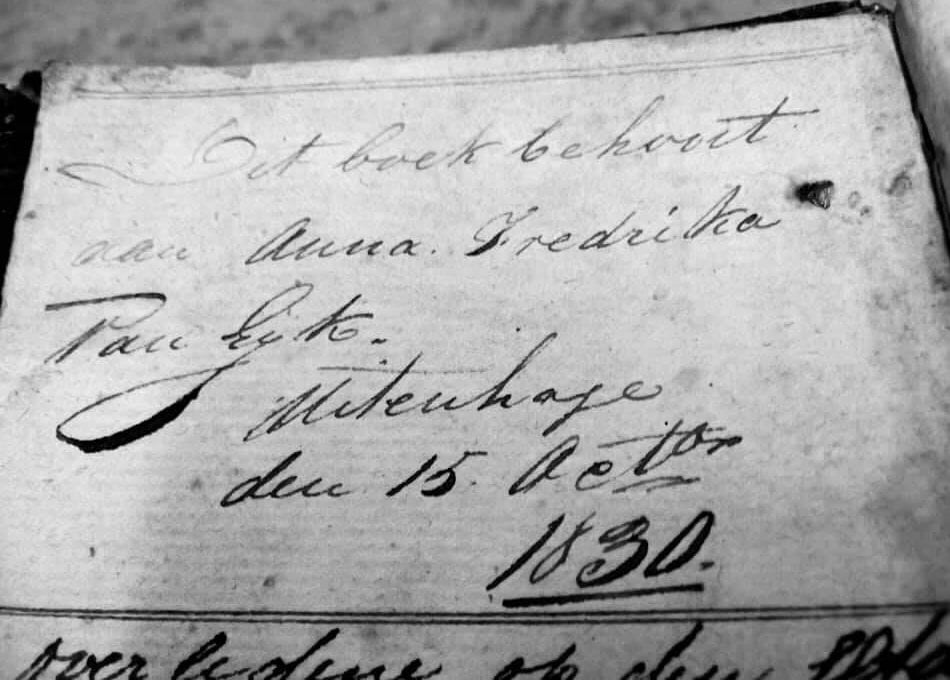 Dit boek behoort
aan Anna. Fredrika
Van Eyk.
Uitenhage
den 15 Octor
1830.
overledene op den